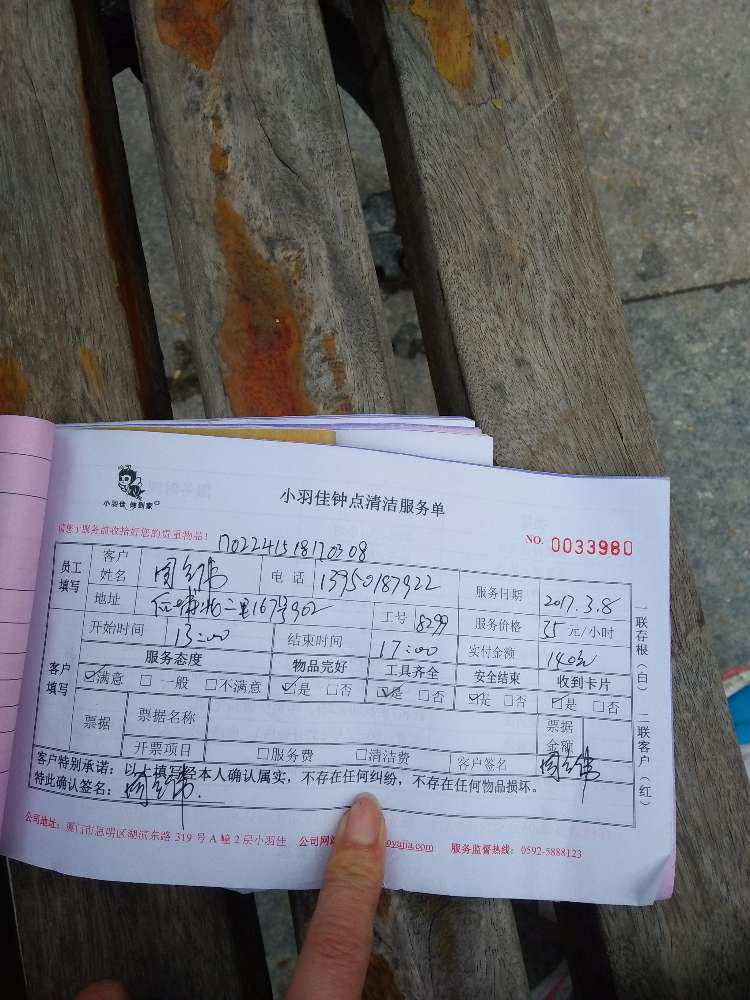 小羽佳 帅到家
小羽佳钟点清洁服务单
请您于服务前收拾好您的贵重物品!
NO. 0033980
员工填写
客户姓名
电话 13950187922
服务日期 2017.3.8
地址
工号 8299
服务价格 35 元/小时
开始时间 13:00
结束时间 17:00
实付金额 140元
客户填写
服务态度 物品完好 工具齐全 安全结束 收到卡片
☑满意 □一般 □不满意 ☑是 □否 ☑是 □否 ☑是 □否 ☑是 □否
票据
票据名称
票据金额
开票项目 □服务费 □清洁费
客户签名
客户特别承诺:以上填写经本人确认属实,不存在任何纠纷,不存在任何物品损坏。
特此确认签名:
公司地址:厦门市思明区湖滨东路 319 号 A 幢 2 层小羽佳 公司网 oyujia.com 服务监督热线:0592-5888123
一联存根(白)
二联客户(红)